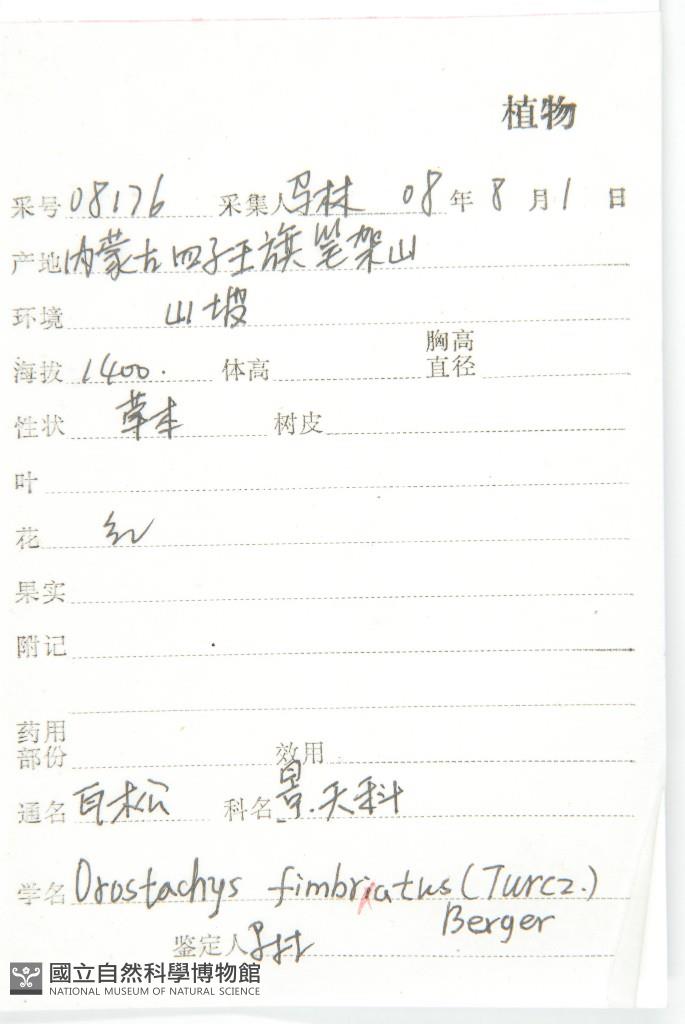 植物
采号 08176 采集人 马林 08 年 8 月 1 日
产地 内蒙古四子王旗笔架山
环境 山坡
海拔 1400. 体高 胸高直径
性状 草本 树皮
叶
花 红
果实
附记
药用部份 效用
通名 瓦松 科名 景天科
学名 Orostachys fimbriatus (Turcz.)
Berger
鉴定人 马林
國立自然科學博物館
NATIONAL MUSEUM OF NATURAL SCIENCE